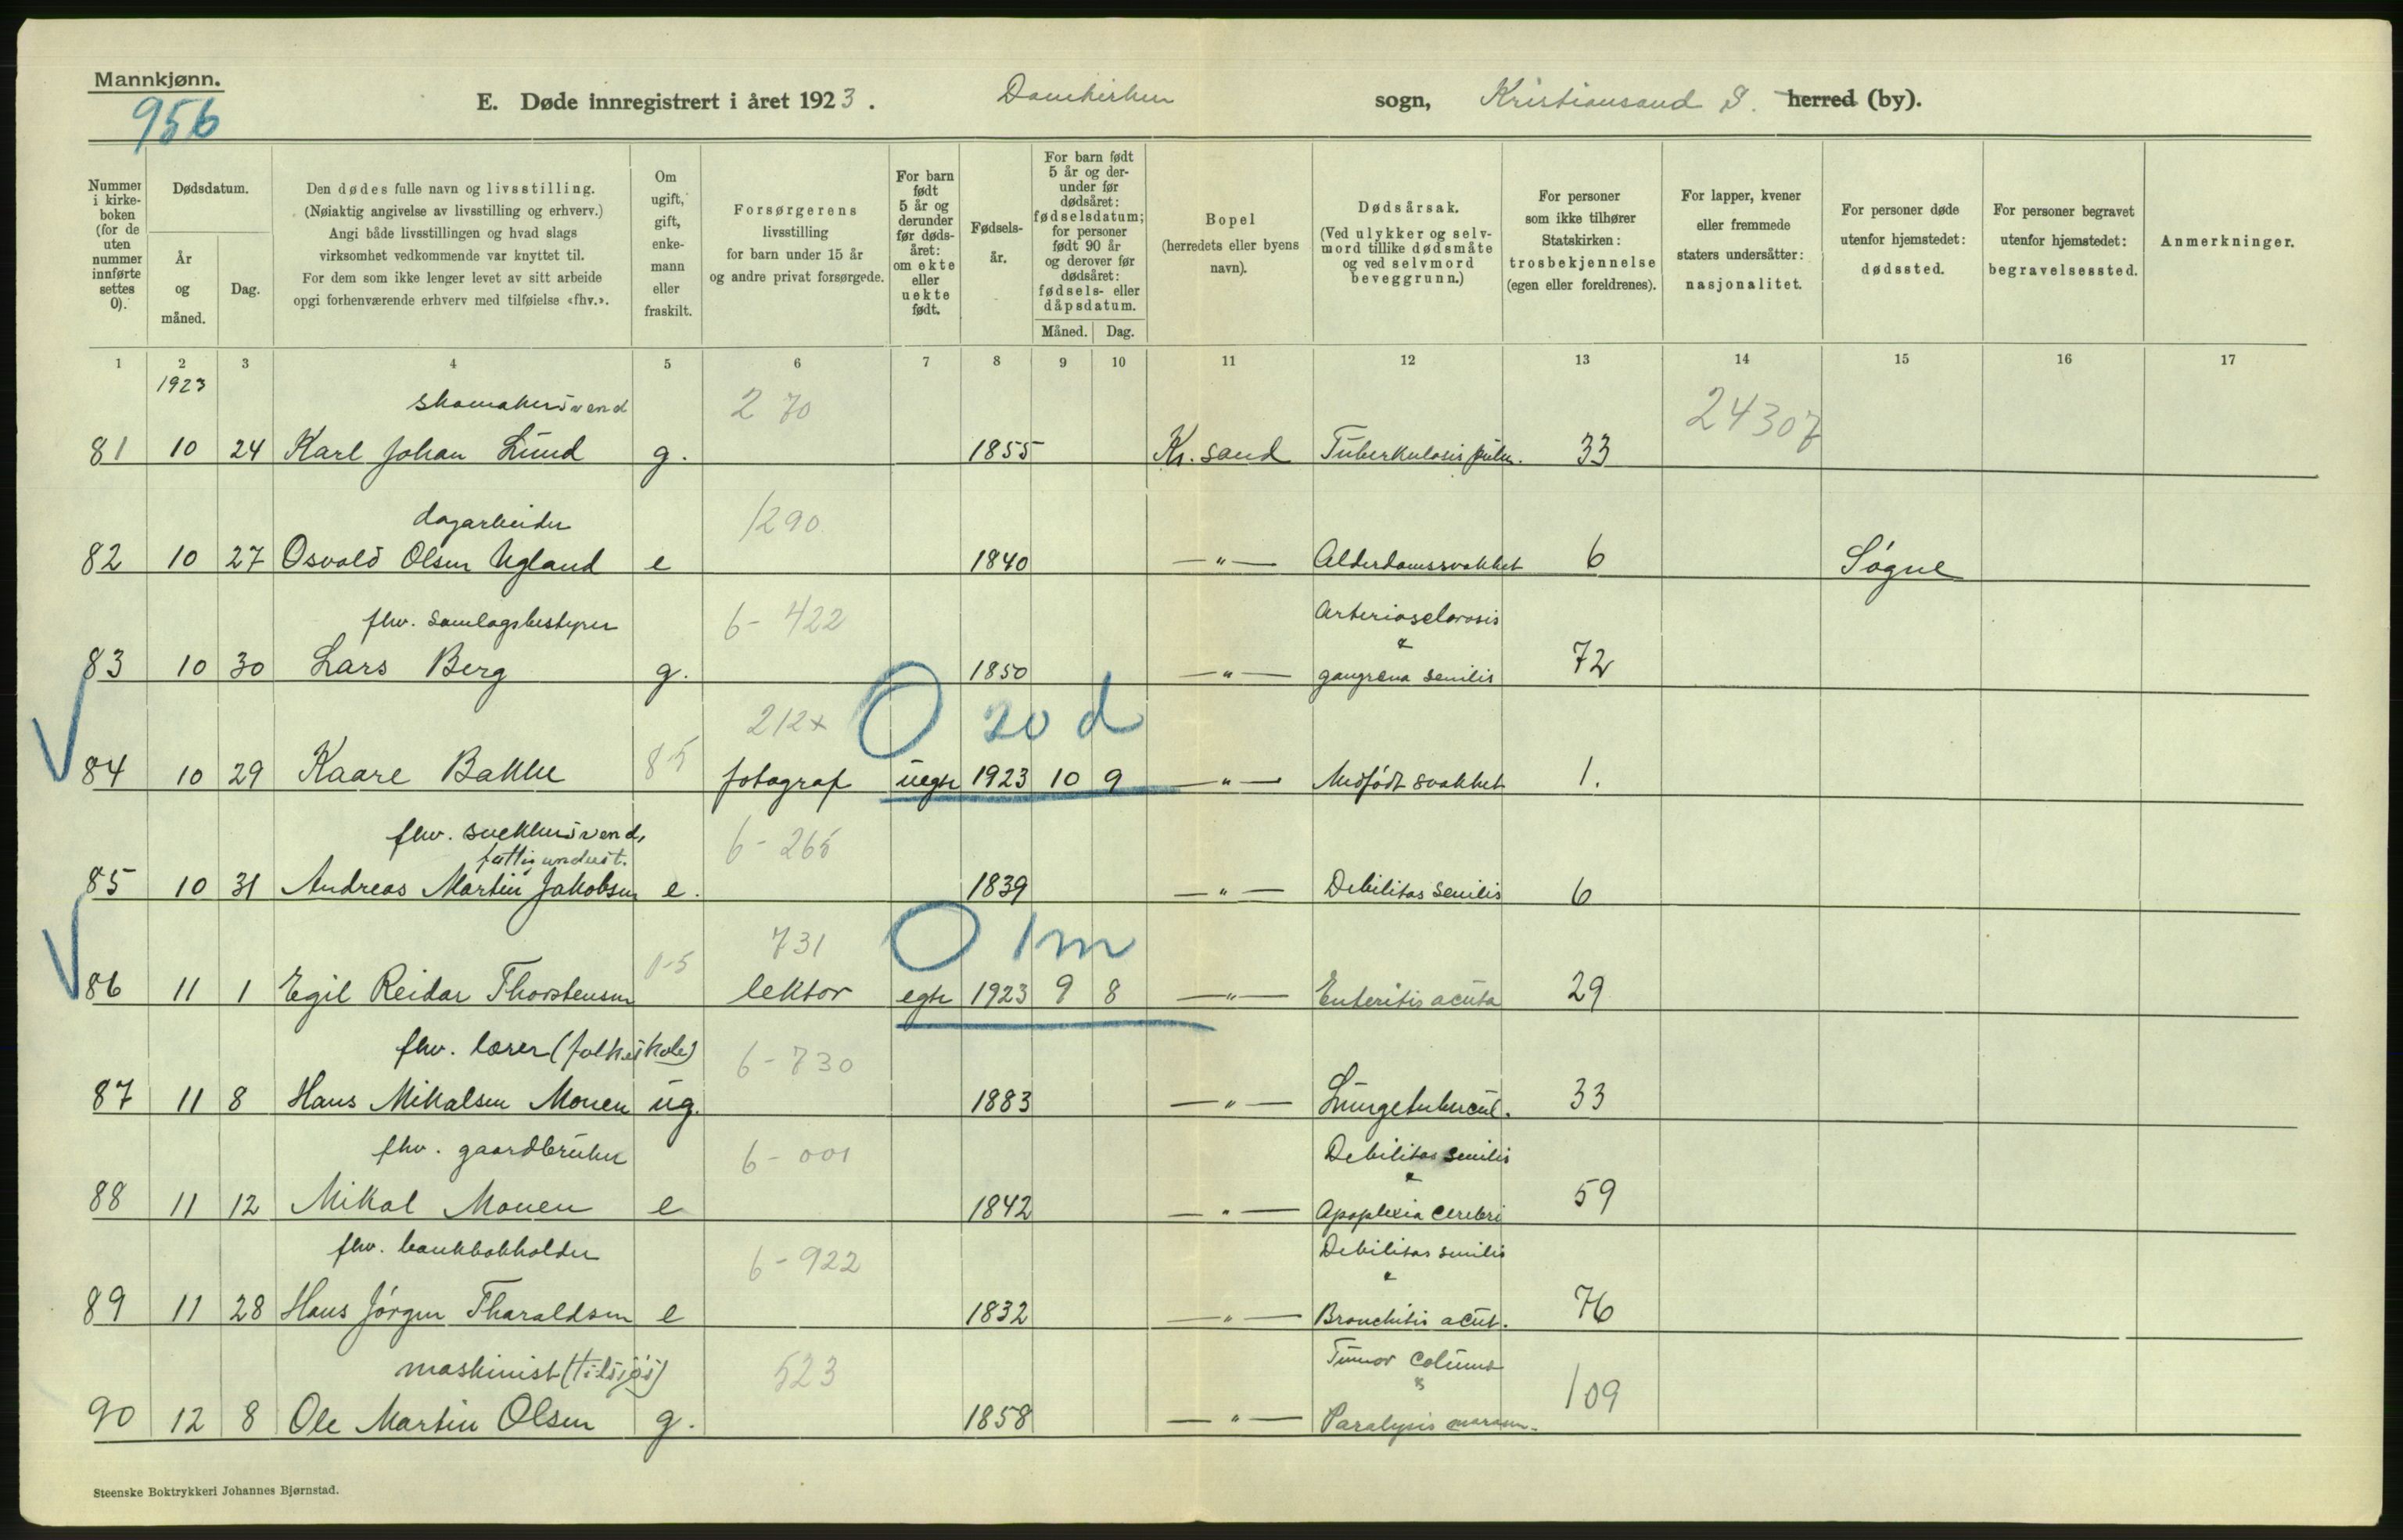 Mannkjønn.
956
E. Døde innregistrert i året 1923. Domkirken sogn, Kristiansand S. herred (by).
Nummer i kirke-boken (for de uten nummer innførte settes 0).
Dødsdatum.
År og måned.
Dag.
Den dødes fulle navn og livsstilling.
(Nøiaktig angivelse av livsstilling og erhverv.)
Angi både livsstillingen og hvad slags
virksomhet vedkommende var knyttet til.
For dem som ikke lenger levet av sitt arbeide
opgi forhenværende erhverv med tilføielse «fhv.».
Om ugift, gift, enke-mann eller fraskilt.
Forsørgerens
livsstilling
for barn under 15 år
og andre privat forsørgede.
For barn født 5 år og derunder før døds-året: om ekte eller uekte født.
Fødsels-år.
For barn født 5 år og der-under før dødsåret: fødselsdatum; for personer født 90 år og derover før dødsåret: fødsels- eller dåpsdatum.
Måned. Dag.
Bopel
(herredets eller byens
navn).
Dødsårsak.
(Ved ulykker og selv-
mord tillike dødsmåte
og ved selvmord
beveggrunn.)
For personer
som ikke tilhører
Statskirken:
trosbekjennelse
(egen eller foreldrenes).
For lapper, kvener
eller fremmede
staters undersåtter:
nasjonalitet.
For personer døde
utenfor hjemstedet:
dødssted.
For personer begravet
utenfor hjemstedet:
begravelsessted.
Anmerkninger.
1 2 3 4 5 6 7 8 9 10 11 12 13 14 15 16 17
1923
skomakersvend 270 24307
81 10 24 Karl Johan Lund g. 1855 Kr.sand Tuberkulosis pulm. 33
dagarbeider 1290
82 10 27 Osvald Olsen Ugland e 1840 —"— Alderdomssvakhet 6 Søgne
fhv. samlagsbestyrer 6-422 Arteriosclerosis
&
83 10 30 Lars Berg g. 1850 —"— gangrena senilis 72
212x 0 20 d
84 10 29 Kaare Bakke 8-5 fotograf uegte 1923 10 9 —"— Medfødt svakhet 1.
fhv. snekkersvend, 6-265
fattigunderst.
85 10 31 Andreas Martin Jakobsen e. 1839 —"— Debilitas senilis 6
731 0 1m
86 11 1 Egil Reidar Thorstensen 1-5 lektor egte 1923 9 8 —"— Enteritis acuta 29
fhv. lærer (folkeskole) 6-730
87 11 8 Hans Mikalsen Monen ug. 1883 —"— Lungetubercul. 33
fhv. gaardbruker 6-001 Debilitas senilis
&
88 11 12 Mikal Monen e 1842 —"— Apoplexia cerebri 59
fhv. bankbokholder 6-922 Debilitas senilis
&
89 11 28 Hans Jörgen Tharaldsen e 1832 —"— Bronchitis acut. 76
maskinist (tilsjøs) 523 Tumor column
&
90 12 8 Ole Martin Olsen g. 1858 —"— Paralysis 109
Steenske Boktrykkeri Johannes Bjørnstad.